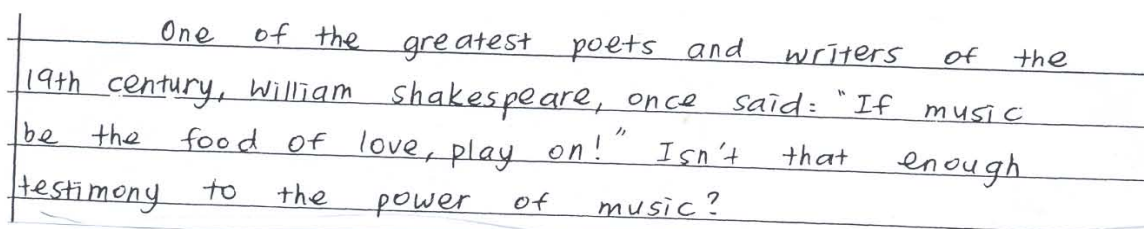 One of the greatest poets and writers of the
19th century, William Shakespeare, once said: "If music
be the food of love, play on!" Isn't that enough
testimony to the power of music?